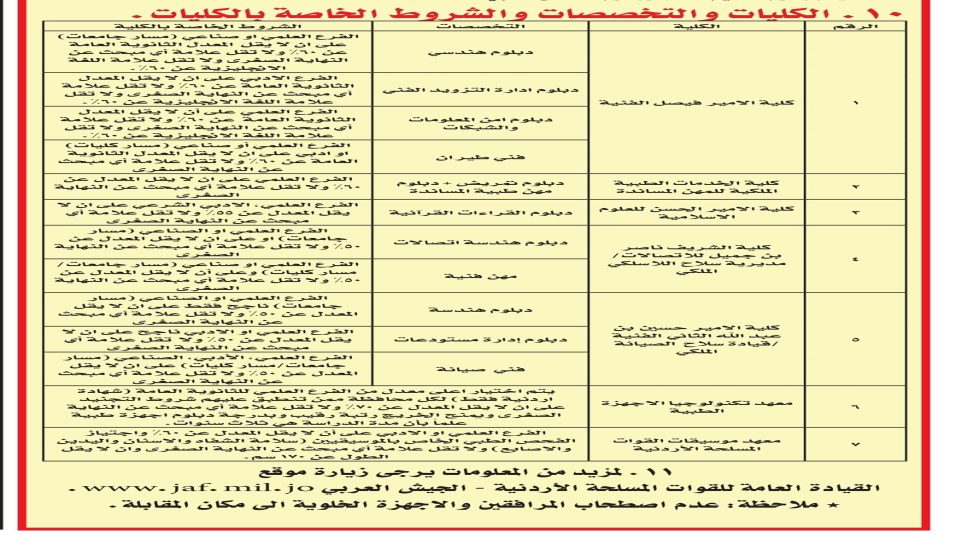 ١٠ . الكليات والتخصصات والشروط الخاصة بالكليات .
الرقم الكلية التخصصات الشروط الخاصة بالكلية
١ كلية الامير فيصل الفنية
دبلوم هندسي
الفرع العلمي او صناعي (مسار جامعات)
على ان لا يقل المعدل الثانوية العامة
عن ٦٠٪ ولا تقل علامة أي مبحث عن
النهاية الصغرى ولا تقل علامة اللغة
الانجليزية عن ٦٠٪.
دبلوم ادارة التزويد الفني
الفرع الادبي على ان لا يقل المعدل
الثانوية العامة عن ٦٠٪ ولا تقل علامة
أي مبحث عن النهاية الصغرى ولا تقل
علامة اللغة الانجليزية عن ٦٠٪.
دبلوم امن المعلومات
والشبكات
الفرع العلمي على أن لا يقل المعدل
الثانوية العامة عن ٦٠٪ ولا تقل علامة
أي مبحث عن النهاية الصغرى ولا تقل
علامة اللغة الانجليزية عن ٦٠٪.
فني طيران
الفرع العلمي أو صناعي (مسار كليات)
او ادبي على ان لا يقل المعدل الثانوية
العامة عن ٦٠٪ ولا تقل علامة أي مبحث
عن النهاية الصغرى
٢ كلية الخدمات الطبية
الملكية للمهن المساندة
دبلوم تمريض + دبلوم
مهن طبية المساندة
الفرع العلمي على ان لا يقل المعدل عن
٦٠٪ ولا تقل علامة أي مبحث عن النهاية
الصغرى
٣ كلية الامير الحسن للعلوم
الاسلامية
دبلوم القراءات القرآنية
الفرع العلمي، الادبي الشرعي على ان لا
يقل المعدل عن ٥٥٪ ولا تقل علامة أي
مبحث عن النهاية الصغرى
٤ كلية الشريف ناصر
بن جميل للاتصالات/
مديرية سلاح اللاسلكي
الملكي
دبلوم هندسة اتصالات
الفرع العلمي او الصناعي (مسار
جامعات) او على ان لا يقل المعدل عن
٥٠٪ ولا تقل علامة أي مبحث عن النهاية
الصغرى
مهن فنية
الفرع العلمي او صناعي (مسار جامعات/
مسار كليات) وعلى أن لا يقل المعدل عن
٥٠٪ ولا تقل علامة أي مبحث عن النهاية
الصغرى
٥ كلية الامير حسين بن
عبد الله الثاني الفنية
/قيادة سلاح الصيانة
الملكي
دبلوم هندسة
الفرع العلمي او الصناعي (مسار
جامعات) ناجح فقط على ان لا يقل
المعدل عن ٥٠٪ ولا تقل علامة أي مبحث
عن النهاية الصغرى
دبلوم إدارة مستودعات
الفرع العلمي او الادبي ناجح على ان لا
يقل المعدل عن ٥٠٪ ولا تقل علامة أي
مبحث عن النهاية الصغرى
فني صيانة
الفرع العلمي، الادبي، الصناعي (مسار
جامعات/مسار كليات) على ان لا يقل
المعدل عن ٥٠٪ ولا تقل علامة أي مبحث
عن النهاية الصغرى
٦ معهد تكنولوجيا الاجهزة
الطبية
يتم اختيار اعلى معدل من الفرع العلمي للثانوية العامة (شهادة
أردنية فقط) لكل محافظة ممن تنطبق عليهم شروط التجنيد
على ان لا يقل المعدل عن ٧٠٪ ولا تقل علامة أي مبحث عن النهاية
الصغرى ويمنح الخريج رتبة رقيب وبدرجة دبلوم اجهزة طبية
علماً بأن مدة الدراسة هي ثلاث سنوات.
٧ معهد موسيقات القوات
المسلحة الأردنية
الفرع العلمي او الادبي على أن لا يقل المعدل عن ٦٠٪ واجتياز
الفحص الطبي الخاص بالموسيقيين (سلامة الشفاه والاسنان واليدين
والاصابع) ولا تقل علامة أي مبحث عن النهاية الصغرى وان لا يقل
الطول عن ١٧٠ سم.
١١ . لمزيد من المعلومات يرجى زيارة موقع
القيادة العامة للقوات المسلحة الأردنية - الجيش العربي www.jaf.mil.jo .
* ملاحظة: عدم اصطحاب المرافقين والاجهزة الخلوية الى مكان المقابلة .